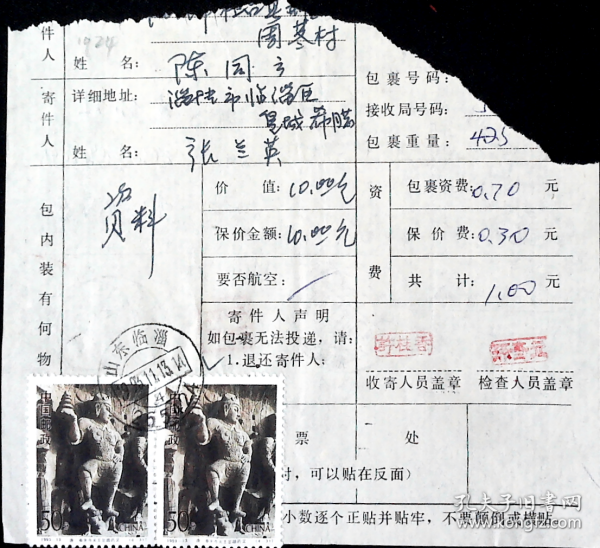 周墓村
件人
1924
姓 名: 陈同
寄件人
详细地址: 淄博市临淄区
皇城
姓 名: 张兰英
包裹号码:
接收局号码:
包裹重量: 425
包内装有何物
资料
价 值: 10.00元
保价金额: 10.00元
要否航空:
资费
包裹资费: 0.70 元
保价费: 0.30 元
共 计: 1.00 元
寄件人声明
如包裹无法投递,请:
1.退还寄件人:
收寄人员盖章
检查人员盖章
山东临淄
票 处
付,可以贴在反面)
小数逐个正贴并贴牢,不要颠倒或横贴
中国邮政
50
CHINA
中国邮政
50
CHINA
孔夫子旧书网